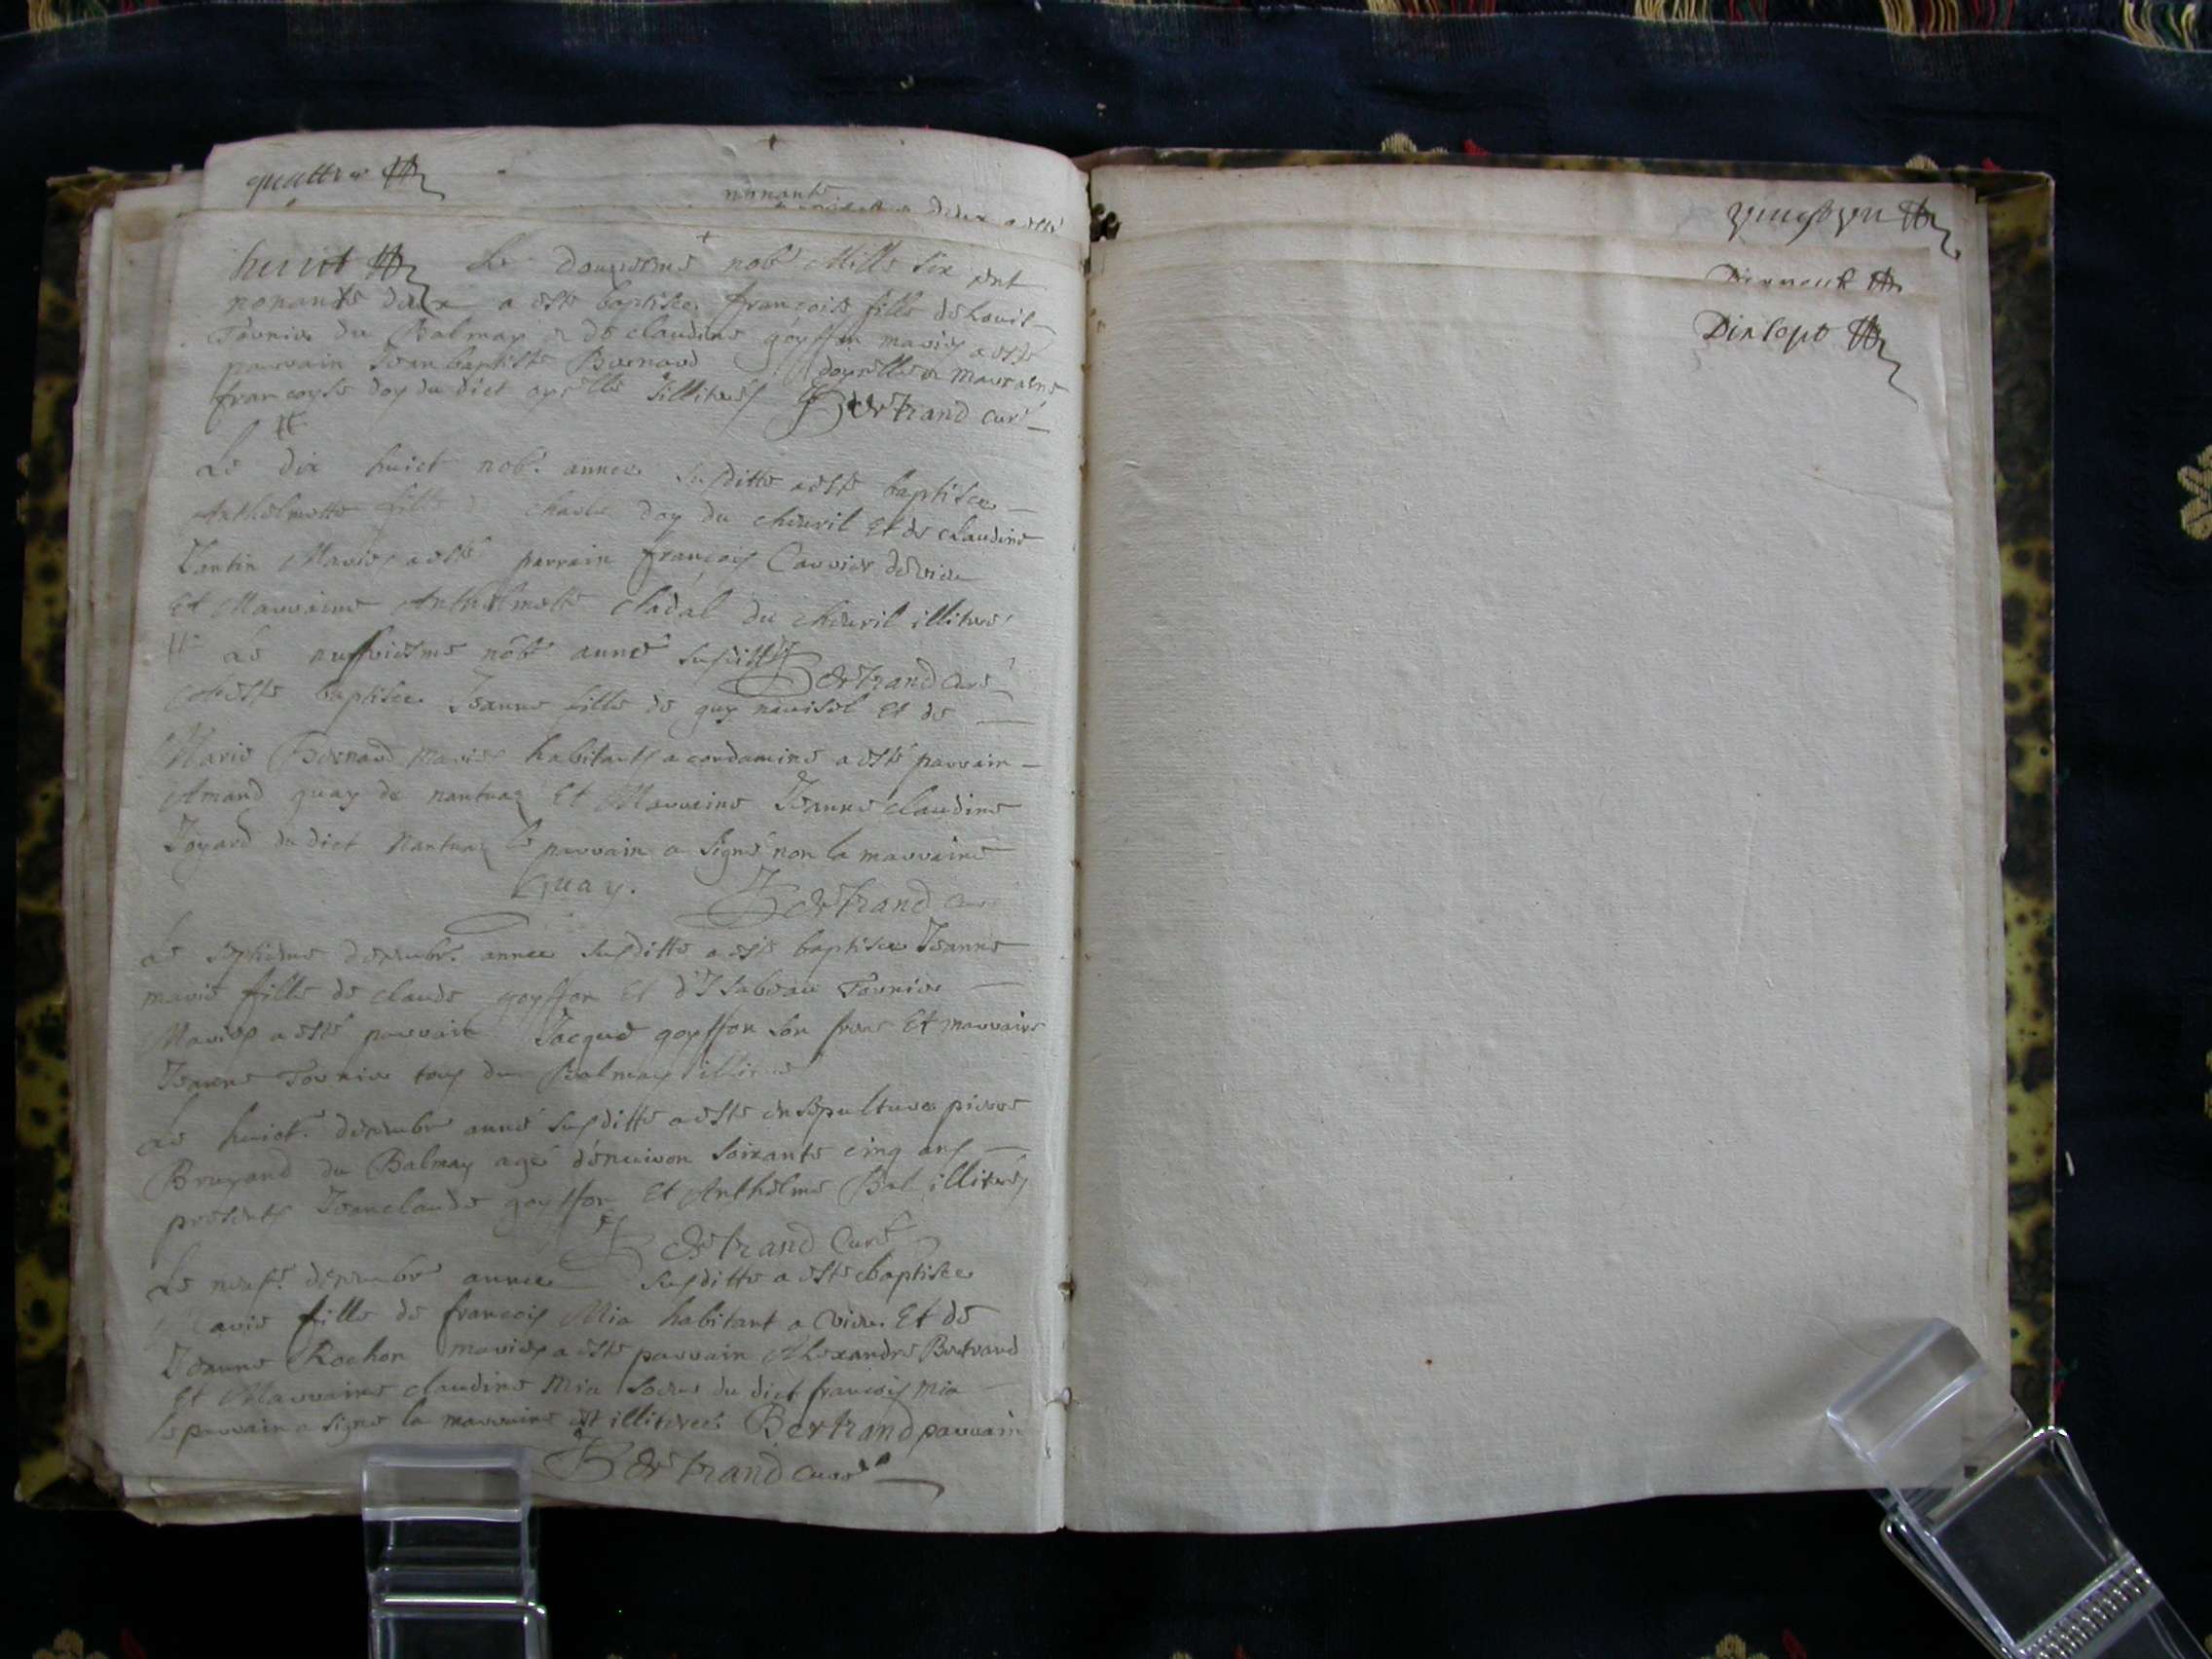 quattre
nonante
deux a esté
huict Le douziesme nob.e Mille six cent
nonante deux a este baptisée françoise fille de Louis
Tournier du Balmay & de claudine goyffon mariés a esté
parrain Jean baptiste Bernard & marraine
françoyse doy du dict illiterés Bertrand curé
Le dix huict nob.e année susditte a este baptisée
Anthelmette fille de Charle doy du cheuril Et de claudine
Tantin Mariés a esté parrain françois Carrier de vieu
Et Marraine Anthelmette du cheuril illiteré
Le nob.e anneé susditte Bertrand Curé
A este baptisée Jeanne fille de guy Et de
Marie Bernard Mariés habitants a condamine a esté parrain
Amand quay de nantuaz Et Marraine Jeanne claudine
Joyard du dict Nantuaz le parrain a signé non la marraine
Quay. Bertrand Curé
Le septiesme decembr.e annee susditte a este baptisée Jeanne
marie fille de claude goyffon Et d'Isabeau Tournier
Mariés a esté parrain Jacque goyffon son frere Et marraine
Jeanne Tournier tous du Balmay illiteré
Le huict.e decembre anné susditte a este ensepulturé pierre
Bruyand du Balmay agé d'enuiron soixante cinq ans
presents Jeanclaude goyffon Et Anthelme Bal illiterés
Bertrand Curé
Le neuf.e decembre annee susditte a este baptisée
Marie fille de françois Mia habitant a vieu Et de
Jeanne Rochon mariés a este parrain Alexandre Bertrand
Et Marraine claudine Mia soeur du dict françois Mia
le parrain a signé la marraine est illiterée Bertrand parrain
Bertrand curé
Dixneuf
Dixsept